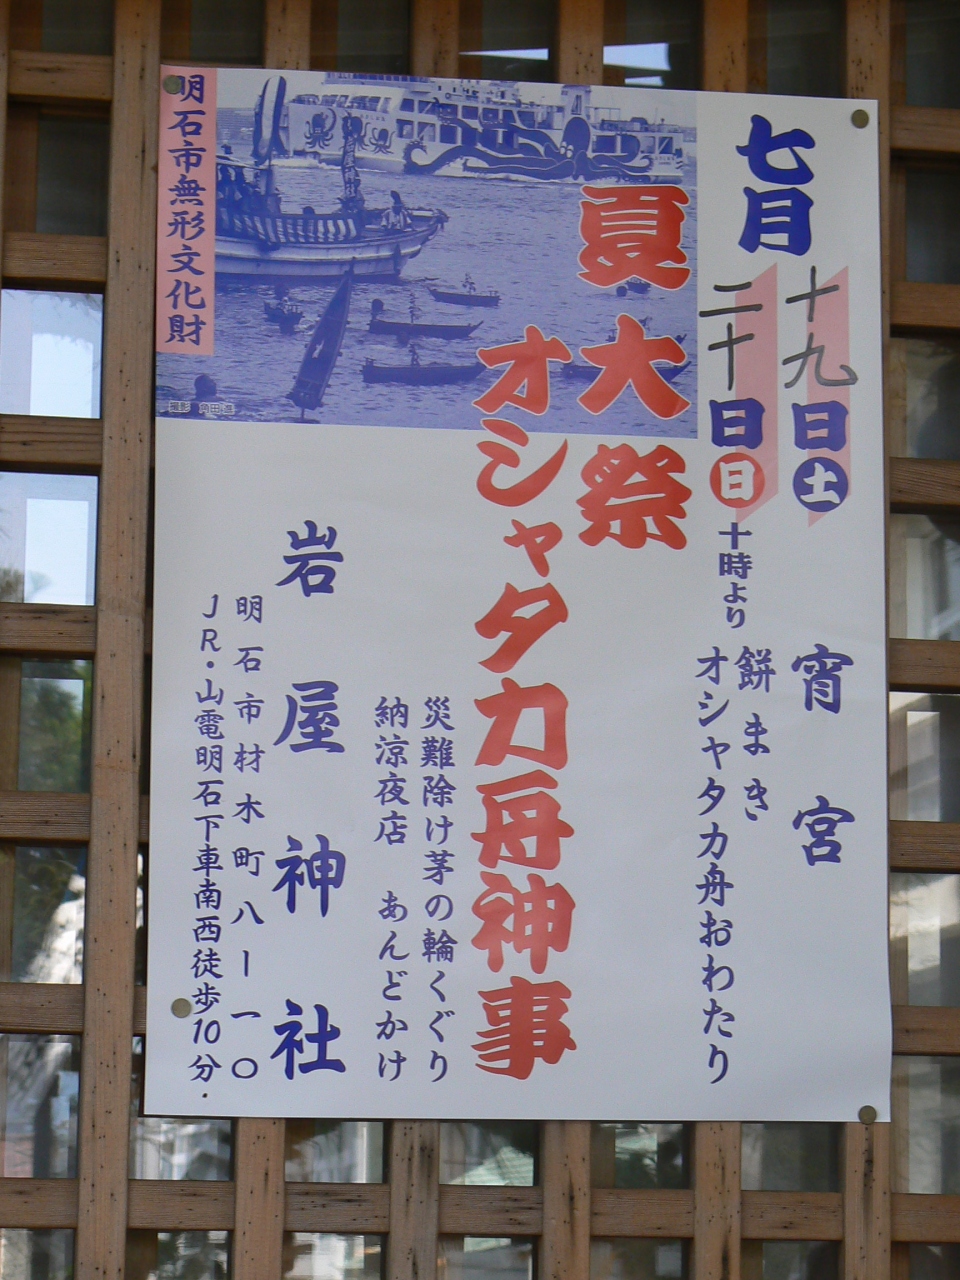 七月
十九日土
宵宮
二十日日
十時より
餅まき
オシャタカ舟おわたり
夏大祭
オシャタカ舟神事
災難除け茅の輪くぐり
納涼夜店 あんどかけ
岩屋神社
明石市材木町八ー一〇
JR・山電明石下車南西徒歩10分・
明石市無形文化財
撮影 角田 進